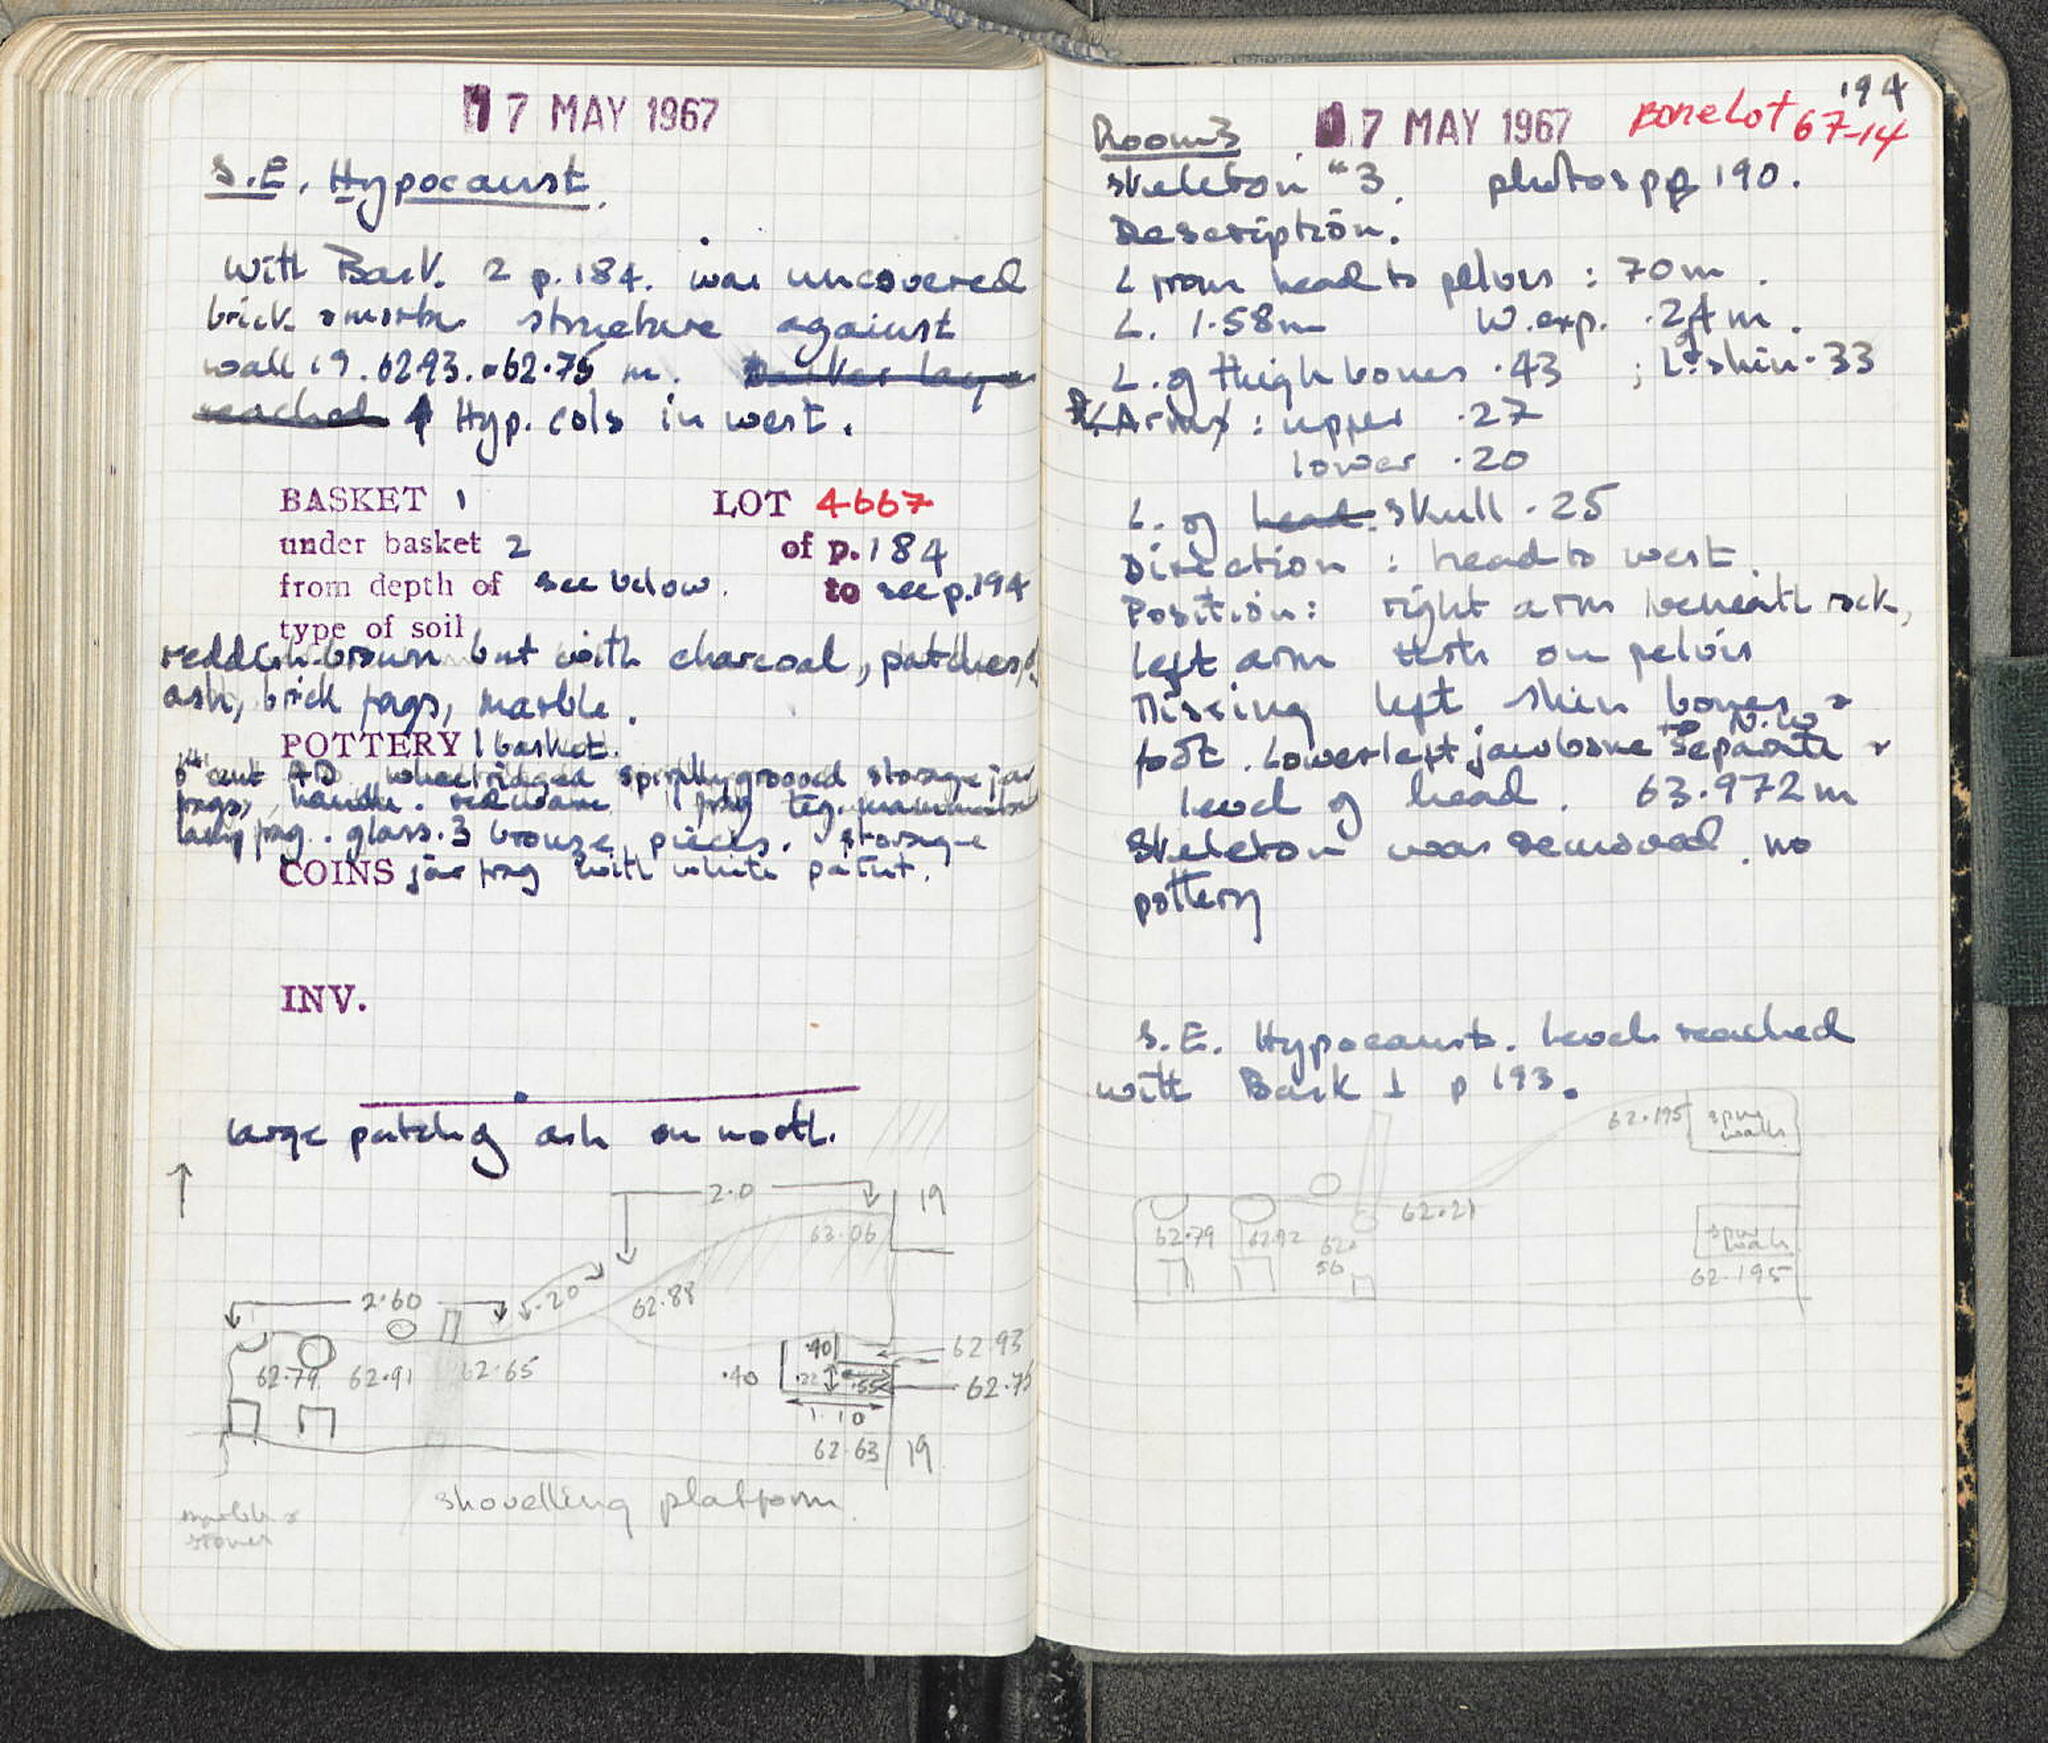 7 MAY 1967
S.E. Hypocaust.
With Bask. 2 p. 184. was uncovered
brick & mortar structure against
wall 19. 62.93.-62.75 m. Darker layer
reached Hyp. cols in west.
BASKET 1 LOT 4667
under basket 2 of p. 184
from depth of see below. to see p. 194
type of soil
reddish-brown but with charcoal, patches of
ash, brick frags, marble.
POTTERY 1 basket.
6th cent AD wheelridged spirally grooved storage jar
frags, handle. redware 1 frag teg. mammata
lamp frag. glass. 3 bronze pieces. storage
COINS jar frag with white paint.
INV.
Large patch of ash on north.
2.0 19
63.06
2.60 .20 62.88
62.79 62.91 62.65
.40 62.93
.40 .22 .55 62.75
1.10
62.63 19
shovelling platform.
marble &
stones
194
Room 3 7 MAY 1967 Bone Lot 67-14
Skeleton "3. photos pg 190.
Description.
L from head to pelvis : 70m.
L. 1.58m W. exp. .24m.
L. of thigh bones .43 ; L. of shin .33
Arm : upper .27
lower .20
L. of head. skull .25
Direction : head to west.
Position : right arm beneath rock,
left arm rests on pelvis
Missing left shin bones &
foot. Lower left jawbone separate to N.W.
level of head. 63.972m
Skeleton was removed. no
pottery
S.E. Hypocaust. Levels reached
with Bask 1 p 193.
62.195 spur walls
62.21
62.79 62.92 62.56
spur walls
62.195